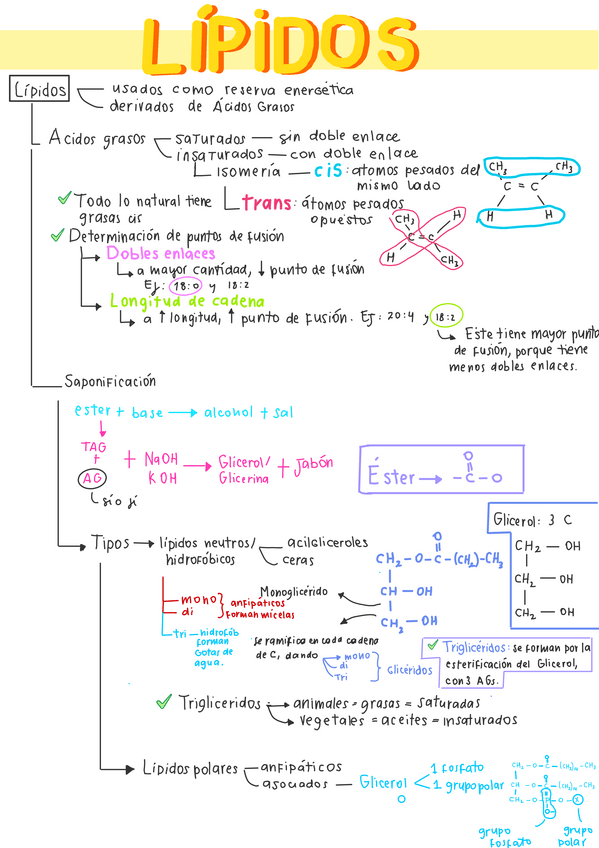 LÍPIDOS
Lípidos
usados como reserva energética
derivados de Ácidos Grasos
Acidos grasos
saturados — sin doble enlace
insaturados — con doble enlace
Isomería — cis: átomos pesados del
mismo lado
CH3 CH3
C = C
H H
trans: átomos pesados
opuestos
CH3 H
C = C
H CH3
✓ Todo lo natural tiene
grasas cis
✓ Determinación de puntos de fusión
Dobles enlaces
a mayor cantidad, ↓ punto de fusión
Ej: 18:0 y 18:2
Longitud de cadena
a ↑ longitud, ↑ punto de fusión. Ej: 20:4 y 18:2
Este tiene mayor punto
de fusión, porque tiene
menos dobles enlaces.
Saponificación
ester + base → alcohol + sal
TAG
+
AG
sío jí
+ NaOH → Glicerol/ + Jabón
KOH Glicerina
Éster → -C-O
O
Tipos → lípidos neutros/
hidrofóbicos
acilsliceroles
ceras
mono
di
anfipáticos
forman micelas
tri — hidrofób
forman
gotas de
agua.
Monoglicérido
O
CH2 - O - C - (CH2)-CH3
CH — OH
CH2 — OH
Glicerol: 3 C
CH2 — OH
CH2 — OH
CH2 — OH
se ramifica en cada cadena
de C, dando
mono
di
Tri
Glicéridos
✓ Triglicéridos: se forman por la
esterificación del Glicerol,
con 3 AGs.
✓ Trigliceridos → animales = grasas = saturadas
→ vegetales = aceites = insaturados
Lípidos polares
anfipáticos
asociados — Glicerol
O
1 fosfato
1 grupo polar
grupo
fosfato
grupo
polar